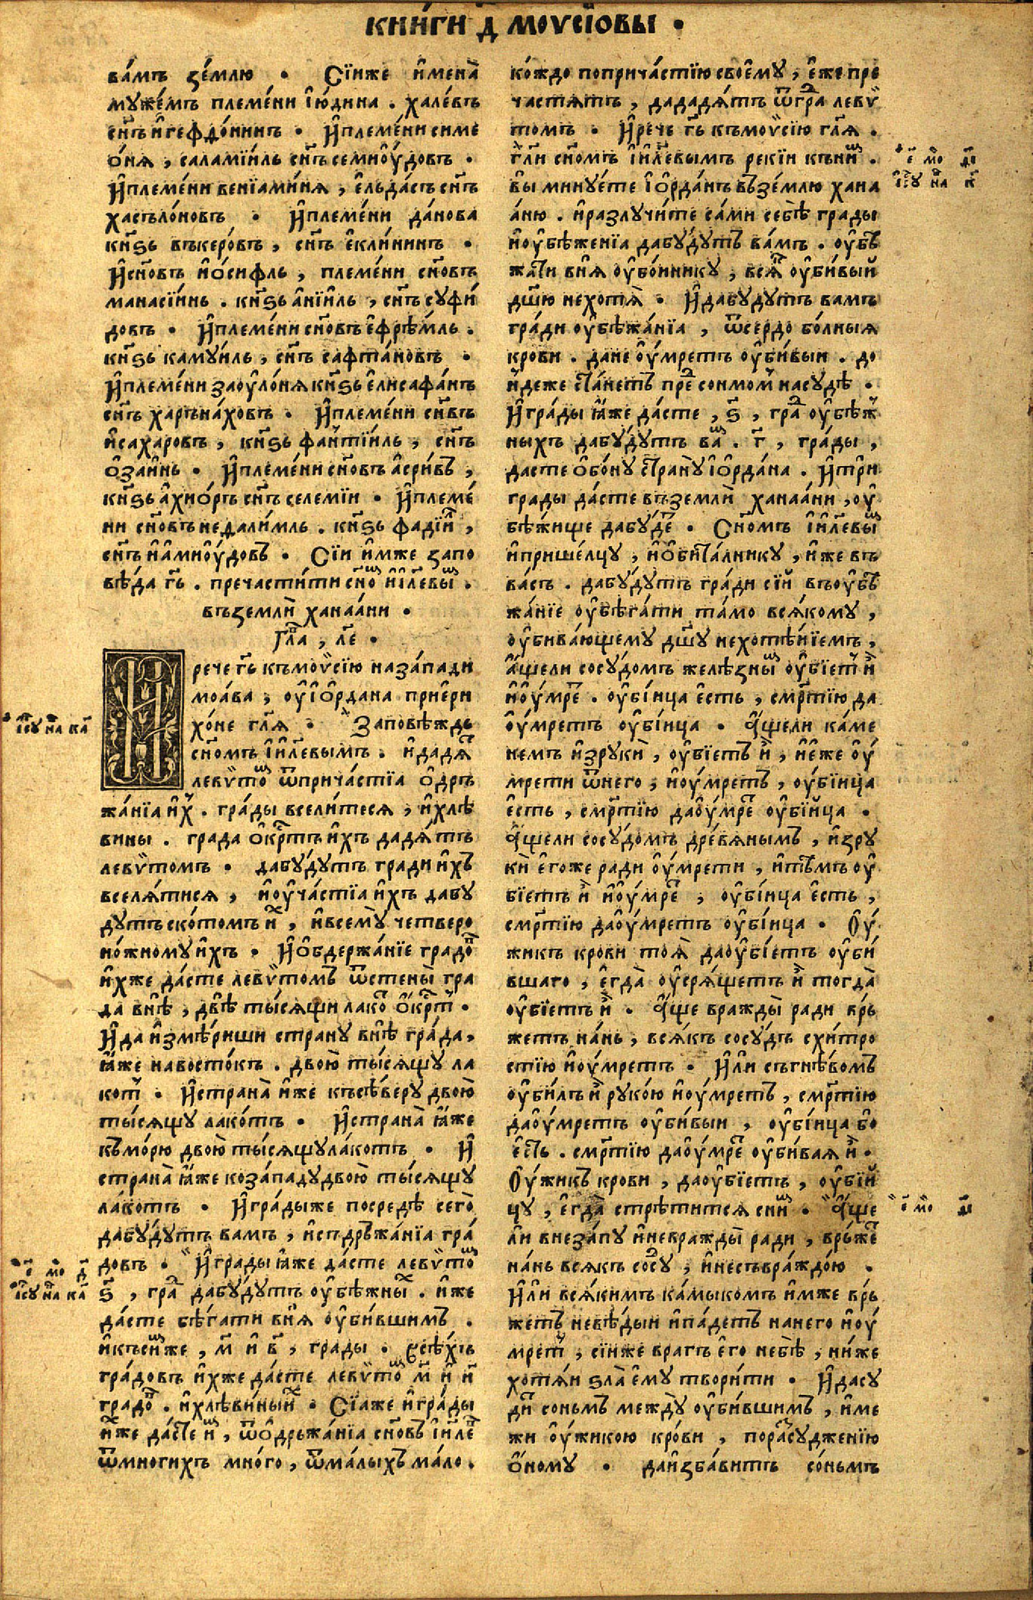 КНИ́ГИ Д҃ МОѴСІ́ѠВЫ ·
ва́мъ зе́млю · Сїи́же имена̀
муже́мъ племе́ни ію́дина . хале́въ
сн҃ъ и҆гефдо́ниинъ · И҆племе́ни симе
о́ня , саламїи́ль сн҃ъ семиоу́довъ ·
И҆племе́ни венїами́ня , е҆льда́съ сн҃ъ
хасъло́новъ · И҆племе́ни да́нова
кн҃ѕь въкеро́въ , сн҃ъ е҆кли́нинъ ·
И҆сн҃овъ ио́сифль , племе́ни сн҃овъ
манасїи́нь . кн҃ѕь а҆нїи́ль , сн҃ъ суфи́
довъ · И҆племе́ни сн҃овъ е҆фре́мль .
кн҃ѕь камуи́ль , сн҃ъ сафта́новъ ·
И҆племе́ни заоуло́ня кн҃ѕь е҆лисафа́нъ
сн҃ъ харъна́ховъ · И҆племе́ни сн҃въ
и҆саха́ровъ , кн҃ѕь фаⷧ҇тїи́ль , сн҃ъ
о҆заи́нь · И҆племе́ни сн҃овъ а҆си́ровъ ,
кн҃ѕь а҆хио́ръ сн҃ъ селемі́и · И҆племе́
ни сн҃овъ недали́мль . кн҃ѕь фадїи́ⷧ ,
сн҃ъ и҆а҆миоу́довъ · Сїи и҆́мже запо
вѣ́да гь҃ . пречасти́ти сн҃оⷨ і҆и҃левыⷨ .
въземлѝ ханаа́ни ·
Гла҃ , л҃е ·
И҆рече гь҃ къмоѵ̈сїю наза́пади
моа́ва , оуі҆о҆рдана прие́ри
хо́не гл҃я · Запові́ждь
сн҃омъ і҆и҃левымъ . и҆дадяⷮ
левѵ̈тоⷨ ѿприча́стїа о҆дръ
жа́нїа и҆́х . гра́ды всели́теся , и҆хлѣ
вины . града о҆́крⷭ҇тъ и҆́хъ дадя́тъ
левѵ̈томъ · дабу́дутъ гради и҆́хъ
вселя́тися , и҆оуча́стїа и҆́хъ дабу
дутъ ско́томъ иⷯ , и҆всему̀ четверо
но́жному и҆́хъ · И҆о҆бдержа́нїе градоⷨ
и҆́хже да́сте левѵ̈томъ ѿстены̀ гра
да внѣ̀ , двѣ̀ ты́сящи лакоⷮ о҆́крⷭ҇тъ .
И҆да и҆змѣ́риши страну внѣ̀ гра́да ,
ꙗ҆́же навосто́къ . двою̀ ты́сящу ла
котⷮ · И҆страна̀ и҆́же късѣ́веру двою̀
ты́сящу лако́тъ · И҆страна̀ ꙗ҆́же
къмо́рю двою̀ ты́сящу ла́котъ · И҆
страна̀ ꙗ҆́же коза́паду двою̀ ты́сящу
ла́котъ · И҆гра́дыже посредѣ̀ сего̀
дабу́дутъ вамъ , и҆спдръжа́нїа гра́
довъ · И҆гра́ды ꙗ҆́же да́сте левѵ̈тоⷨ
ѕ҃ , граⷣ дабу́дутъ оубѣ́жныⷯ . и҆́же
да́сте бѣ́гати вня̀ оуби́вшимъ .
и҆къси́же , м҃ и҆ в҃ , гра́ды · Всѣ́хъ
гра́довъ и҆́хже да́сте левѵ̈тоⷨ м҃ и҆ и҃
градоⷡ . и҆хлѣ́виныиⷯ · Сїа́же и҆гра́ды
и҆́же да́сте иⷨ , ѿо҆дръжа́нїа сн҃овъ і҆и҃леⷡ
ѿмно́гихъ мно́го , ѿма́лыхъ ма́ло .
кождо поприча́стїю своему̀ , е҆́же пре
частя́тъ , дададя́тъ ѿграⷣ левѵ̈
томъ · И҆рече гь҃ къмоѵ̈сїю гл҃я .
гл҃и сн҃омъ і҆и҃левымъ рекїи къниⷨ .
вы минуе́те і҆о҆рда́нъ въземлю хана
а́ню . и҆разлучи́те са́ми себѣ̀ грады
и҆оубѣ́женїа дабу́дутъ ва́мъ . оубѣ
жа́ти вня̀ оубо́иннику , всяⷦ оуби́вый
дш҃ю нехотя̀ · И҆дабу́дутъ вамъ
гра́ди оубѣжа́нїа , ѿсердобо́лныя
крови . дане оу́мретъ оуби́выи . до
и҆́деже ста́нетъ преⷣ сонмомъ насудѣ̀ .
И҆гра́ды ꙗ҆́же да́сте , ѕ҃ , граⷣ оубѣж
ныхъ дабу́дутъ ваⷨ . г҃ , гра́ды ,
дасте о҆бо́ну страну̀ і҆о҆рда́на . и҆три
грады да́сте въземлѝ ханаа́ни , оу
бѣ́жище дабу́дeⷮ · Сн҃омъ і҆и҃левыⷨ
и҆прише́лцу , и҆о҆бита́лнику , и҆́же въ
ва́съ . дабу́дутъ гра́ди сїи́ въоубѣ
жа́нїе оубѣ́гати та́мо вся́кому ,
оубива́ющему дш҃у нехотѣ́нїемъ ,
а҆́щели сосу́домъ желѣ́зныⷨ оубїетъ и҆̀
и҆оу́мреⷮ . оубі́ица е҆́сть , смр҃тїю да
оу́мретъ оуби́ица · А҆́щели ка́ме
немъ и҆зрукѝ , оубїе́тъ и҆̀ , и҆е҆́же оу́
мрети ѿнего ; и҆оу́мретъ , оуби́ица
е҆́сть , смр҃тїю даоу́мреⷮ оуби́ица .
А҆́щели сосу́домъ древя́нымъ , и҆зру
кѝ е҆го́же ради оу́мрети , и҆тѣ́мъ оу
бїетъ и҆̀ и҆оу́мреⷮ , оуби́ица е҆́сть ,
смр҃тїю даоу́мретъ оуби́ица · Оу́
жикъ крови тоя̀ даоубїе́тъ оуби́
вшаго , е҆гда̀ оуся́щетъ и҆̀ тогда̀
оубїетъ и҆̀ . А҆́ще вражды̀ ради вр҃ъ
жетъ на́нь , вся́къ сосу́дъ схи́тро
стїю и҆оу́мретъ · И҆́ли съгнѣ́вомъ
оуби́лъ и҆̀ руко́ю и҆оу́мретъ , смр҃тїю
даоу́мретъ оуби́выи , оуби́ица бо
е҆́сть . смр҃тїю даоу́мреⷮ оуби́вая и҆̀ .
Оу́жикъ крови , даоубїе́тъ , оуби́й
цу , е҆гда̀ стрѣ́тится сниⷨ · А҆́ще
ли внеза́пу и҆невражды̀ ради , врьжеⷮ
на́нь вся́къ сосуⷣ , и҆несъвраждо́ю .
И҆́ли вся́кимъ ка́мыкомъ и҆́мже връ
жетъ невѣ́дыи и҆паде́тъ нанего и҆оу́
мретъ , сїи́же врагъ е҆го̀ небѣ̀ , ни́же
хотя́и ѕла̀ е҆му̀ твори́ти · И҆дасу
диⷮ соньмъ между̀ оуби́вшимъ , и҆ме
жи оу́жикою кро́ви , пора́зсудже́нїю
о҆́ному · даи҆зба́витъ со́ньмъ